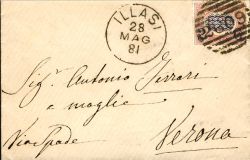 ILLASI
28
MAG
81
Sig.r Antonio Ferrari
a moglie
Via Spade
Verona